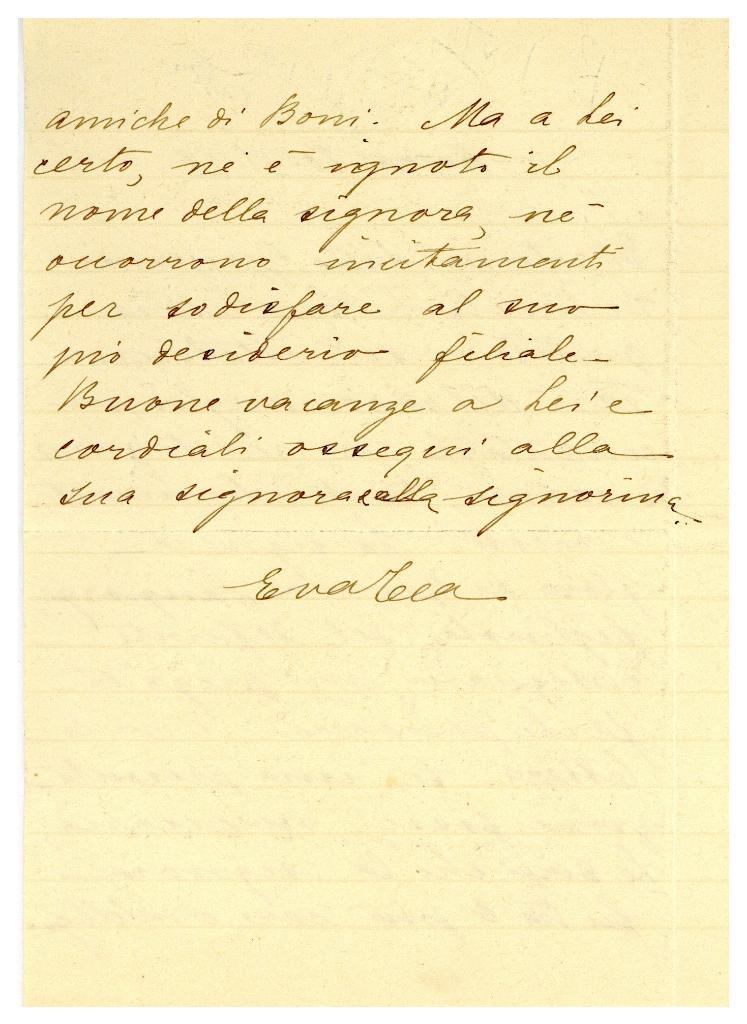 amiche di Boni. Ma a Lei
certo, nè è ignoto il
nome della signora, nè
ocorrono incitamenti
per sodisfare al suo
pio desiderio filiale_
Buone vacanze a Lei e
cordiali ossequi alla
sua signora e alla signorina.
Eva Tea